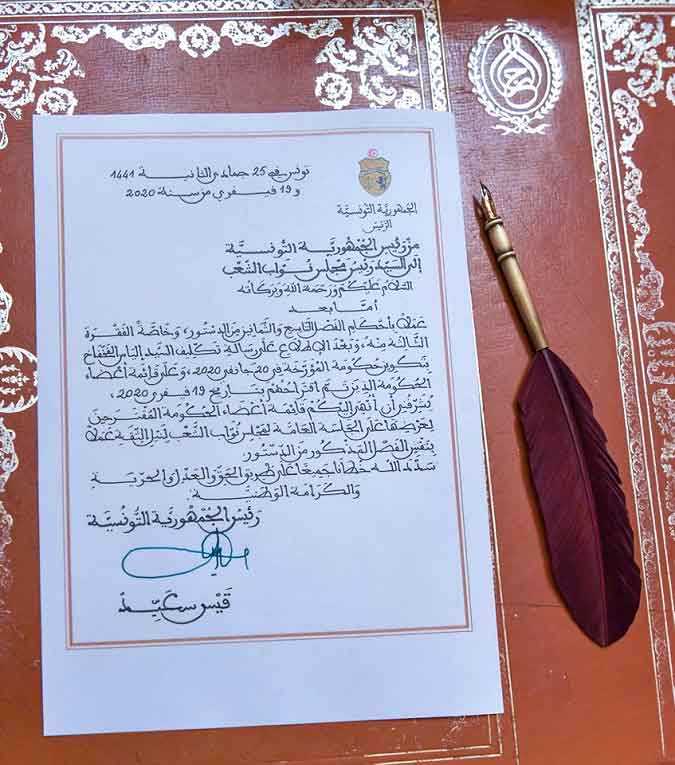 تونس في 25 جمادى الثانية 1441
و 19 فيفري من سنة 2020
الجمهورية التونسية
الرئيس
من رئيس الجمهورية التونسية
إلى السيد رئيس مجلس نواب الشعب
السلام عليكم ورحمة الله وبركاته
أما بعد
عملا بأحكام الفصل التاسع والثمانين من الدستور، وخاصة الفقرة
الثالثة منه، وبعد الاطلاع على رسالة تكليف السيد إلياس الفخفاخ
بتكوين حكومة المؤرخة في 20 جانفي 2020، وعلى قائمة أعضاء
الحكومة الذين تم اقتراحهم بتاريخ 19 فيفري 2020،
يشرفني أن أنهي إليكم قائمة أعضاء الحكومة المقترحين
لعرضها على الجلسة العامة لمجلس نواب الشعب لنيل الثقة عملا
بنفس الفصل المذكور من الدستور.
سدد الله خطانا جميعا على طريق الحق والعدل والحرية
والكرامة الوطنية.
رئيس الجمهورية التونسية
قيس سعيد